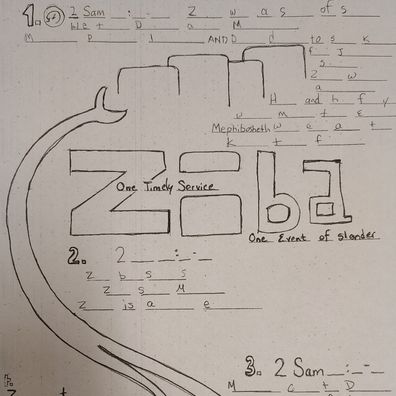 1. 2 Sam __:_-_ Z__ w__ a__ s__ of s__
ble__ t__ D__ a__ M__
M__ p__ d__ AND D__ d__ to s__ k__
f__ J__
s__
Z__ w__
a__
H__ and h__ f__ y__
w__ m__ t__ E__
Mephibosheth w__ e__ a__ t__
k__ t__ f__
Ziba
One Timely Service
One Event of slander
2. 2 ____:_-_
Z__ b__ s__ s__
Z__ s__ M__
Z__ is a__ e__
3. 2 Sam __:_-_
M__ c__ t__ D__